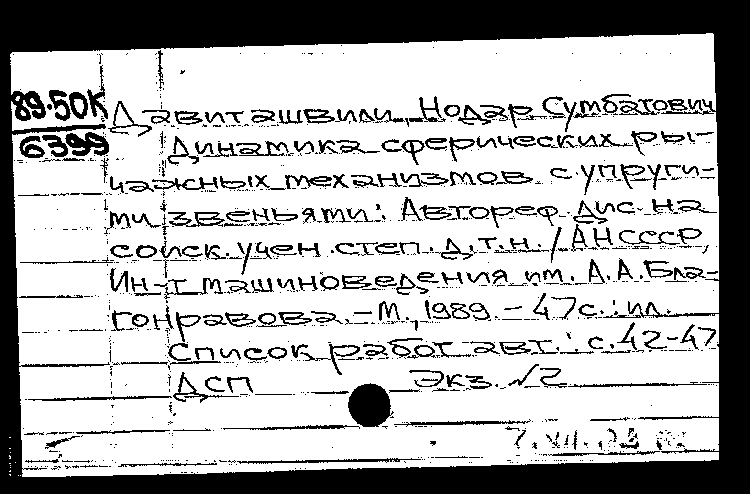 89-50К
6399
Давиташвили, Нодар Сумбатович
Динамика сферических ры-
чажных механизмов с упруги-
ми звеньями: Автореф. дис. на
соиск. учен. степ. д.т.н. / АН СССР,
Ин-т машиноведения им. А.А. Бла-
гонравова. – М., 1989. – 47с.: ил.
Список работ авт.: с. 42-47
ДСП Экз. №2